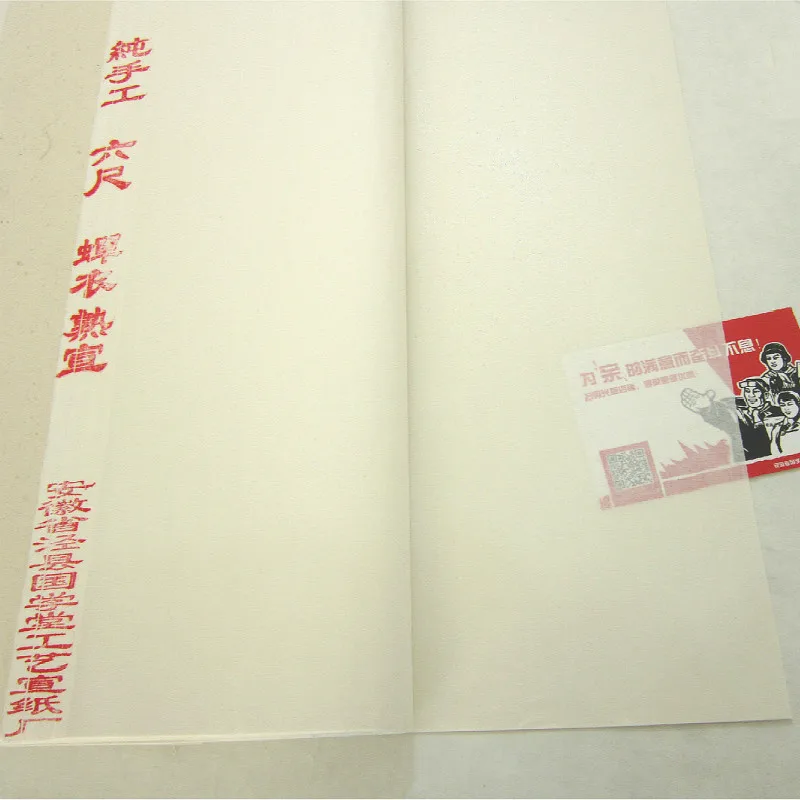 純手工
六尺
蟬衣熟宣
安徽省泾县国学堂工艺宣纸厂
为亲的满意而奋斗不息!